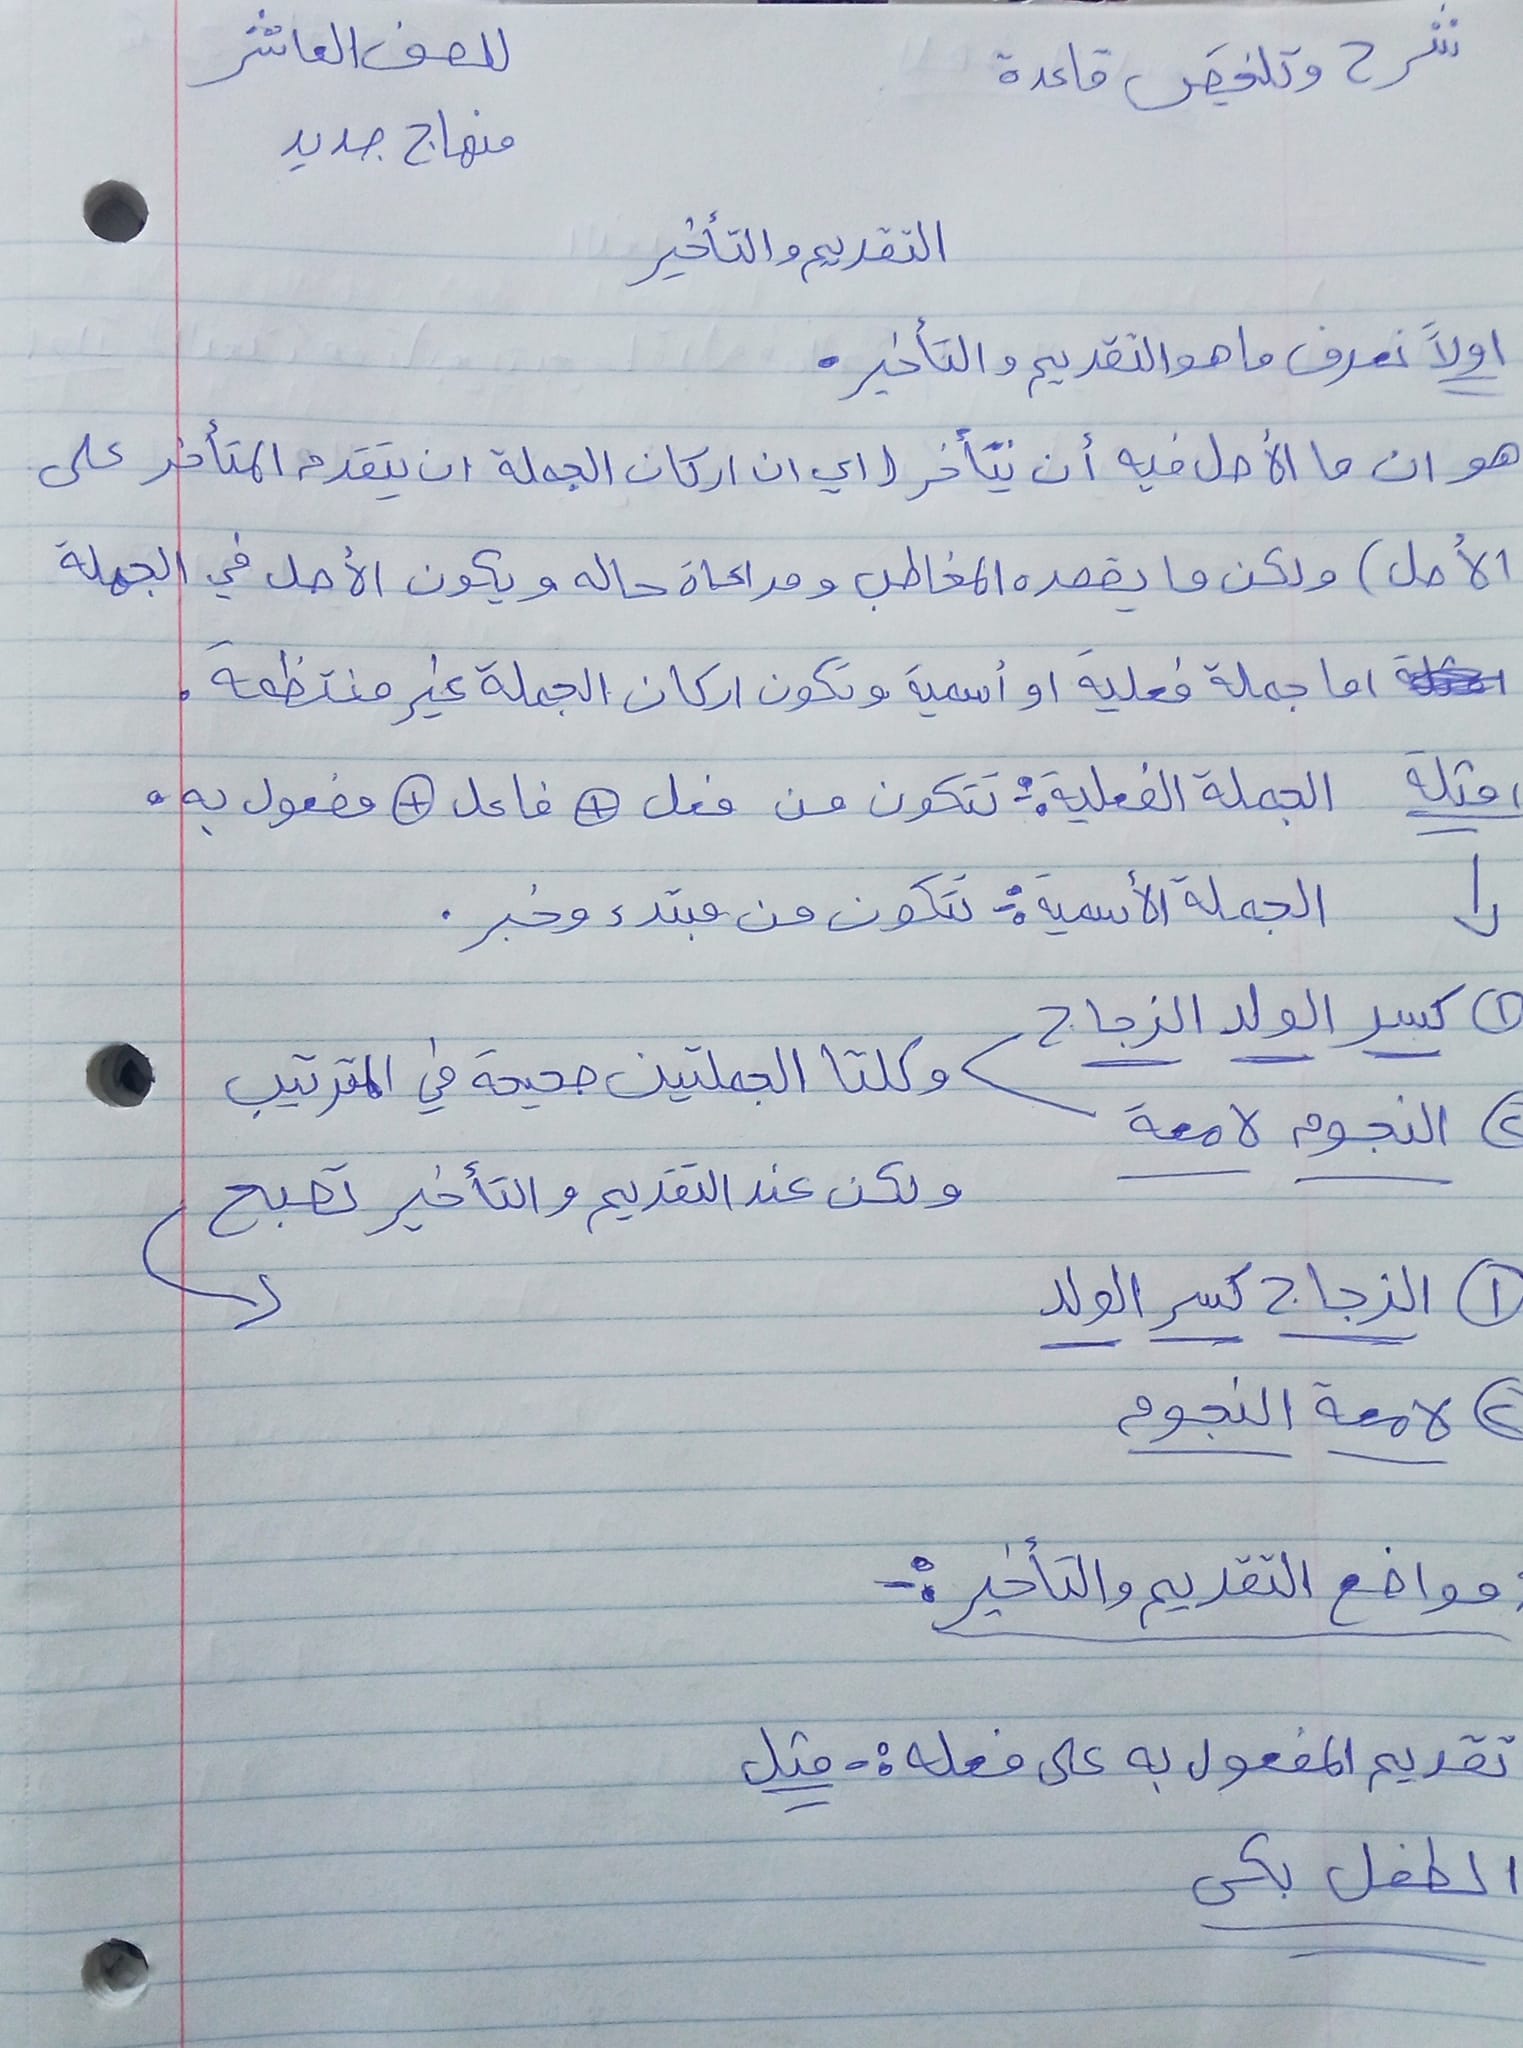 شرح وتلخيص قاعدة
للصف العاشر
منهاج جديد
التقديم والتأخير
اولاً نعرف ما هو التقديم والتأخير.
هو ان ما الأصل فيه أن يتأخر (اي ان اركان الجملة ان يتقدم المتأخر على
الأصل) ولكن ما يقصده المخاطب ومراعاة حاله ويكون الأصل في الجملة
اما جملة فعلية او أسمية وتكون اركان الجملة غير منتظمة.
امثلة الجملة الفعلية:- تتكون من فعل + فاعل + مفعول به.
الجملة الأسمية:- تتكون من مبتدء وخبر.
① كسر الولد الزجاج
وكلتا الجملتين صحيحة في الترتيب
② النجوم لامعة
ولكن عند التقديم والتأخير تصبح
① الزجاج كسر الولد
② لامعة النجوم
مواضع التقديم والتأخير:-
تقديم المفعول به على فعله:- مثل
الطفل بكى